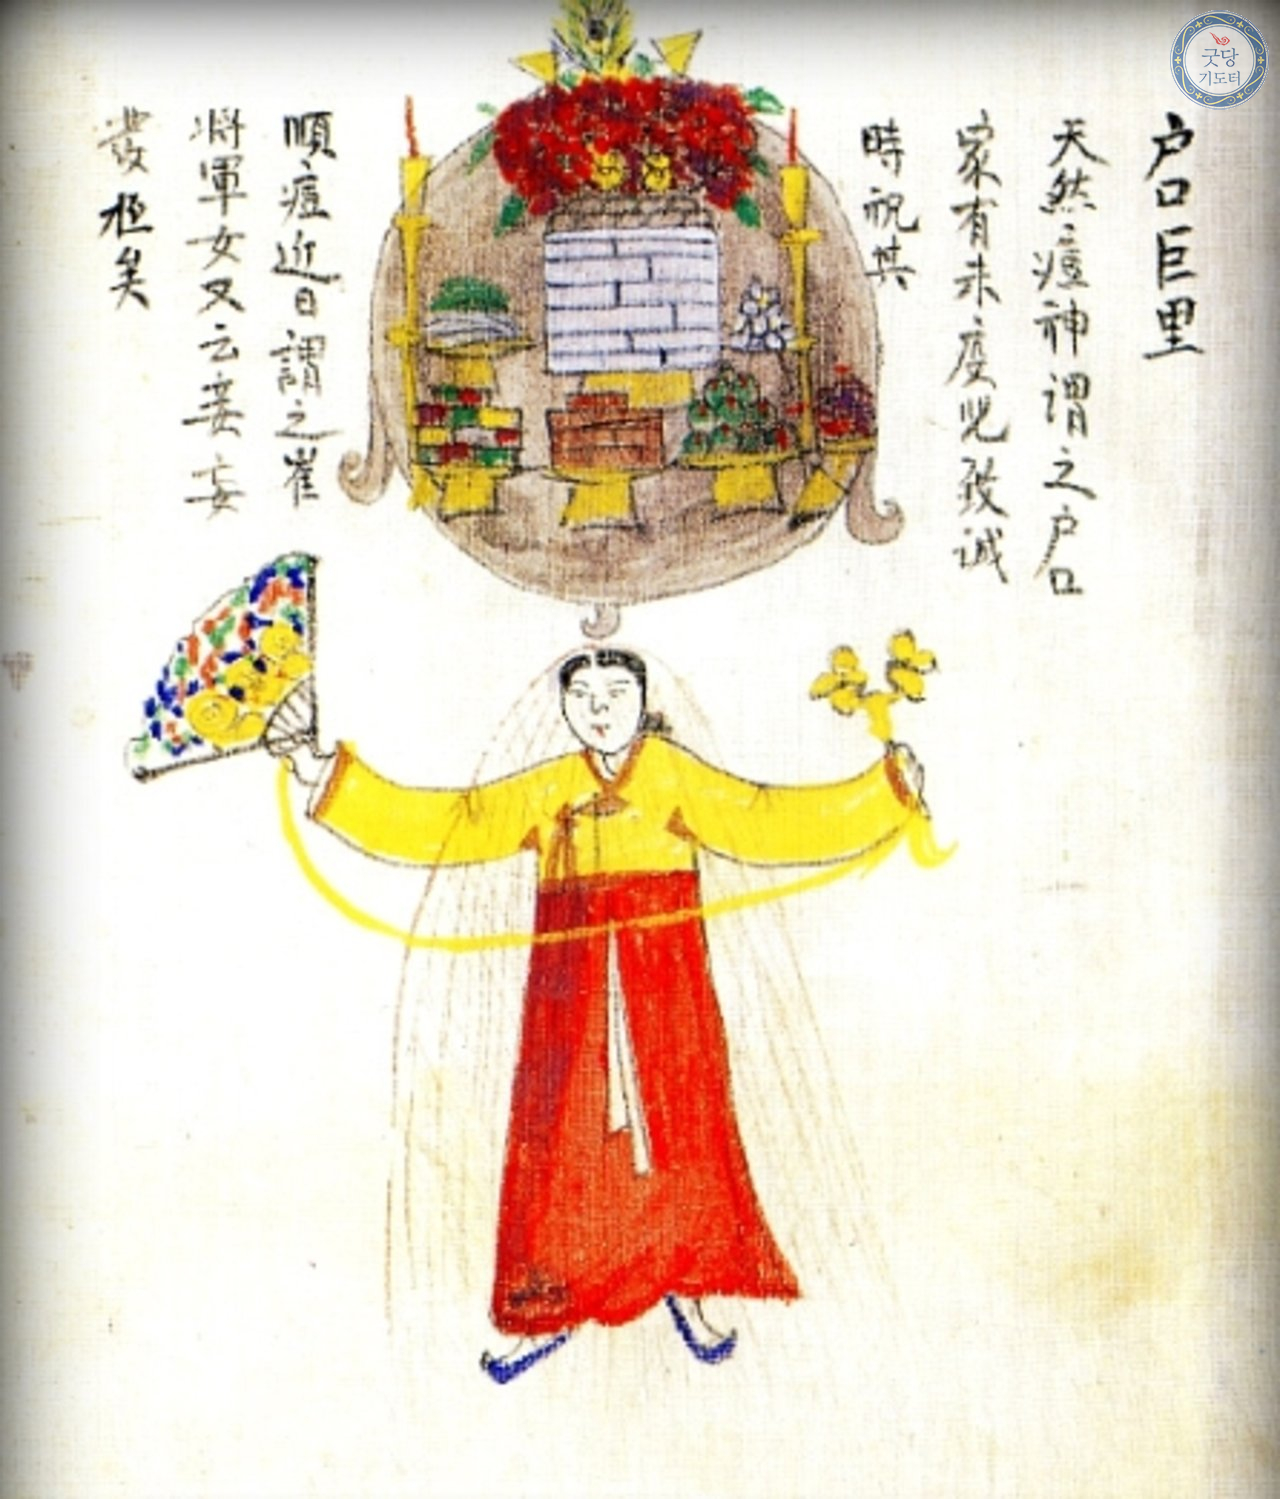 戶口巨里
天然痘神謂之戶口
家有未度兒致誠
時祝其
順痘近日謂之崔
將軍女又云妾妄
發極矣
굿당
기도터